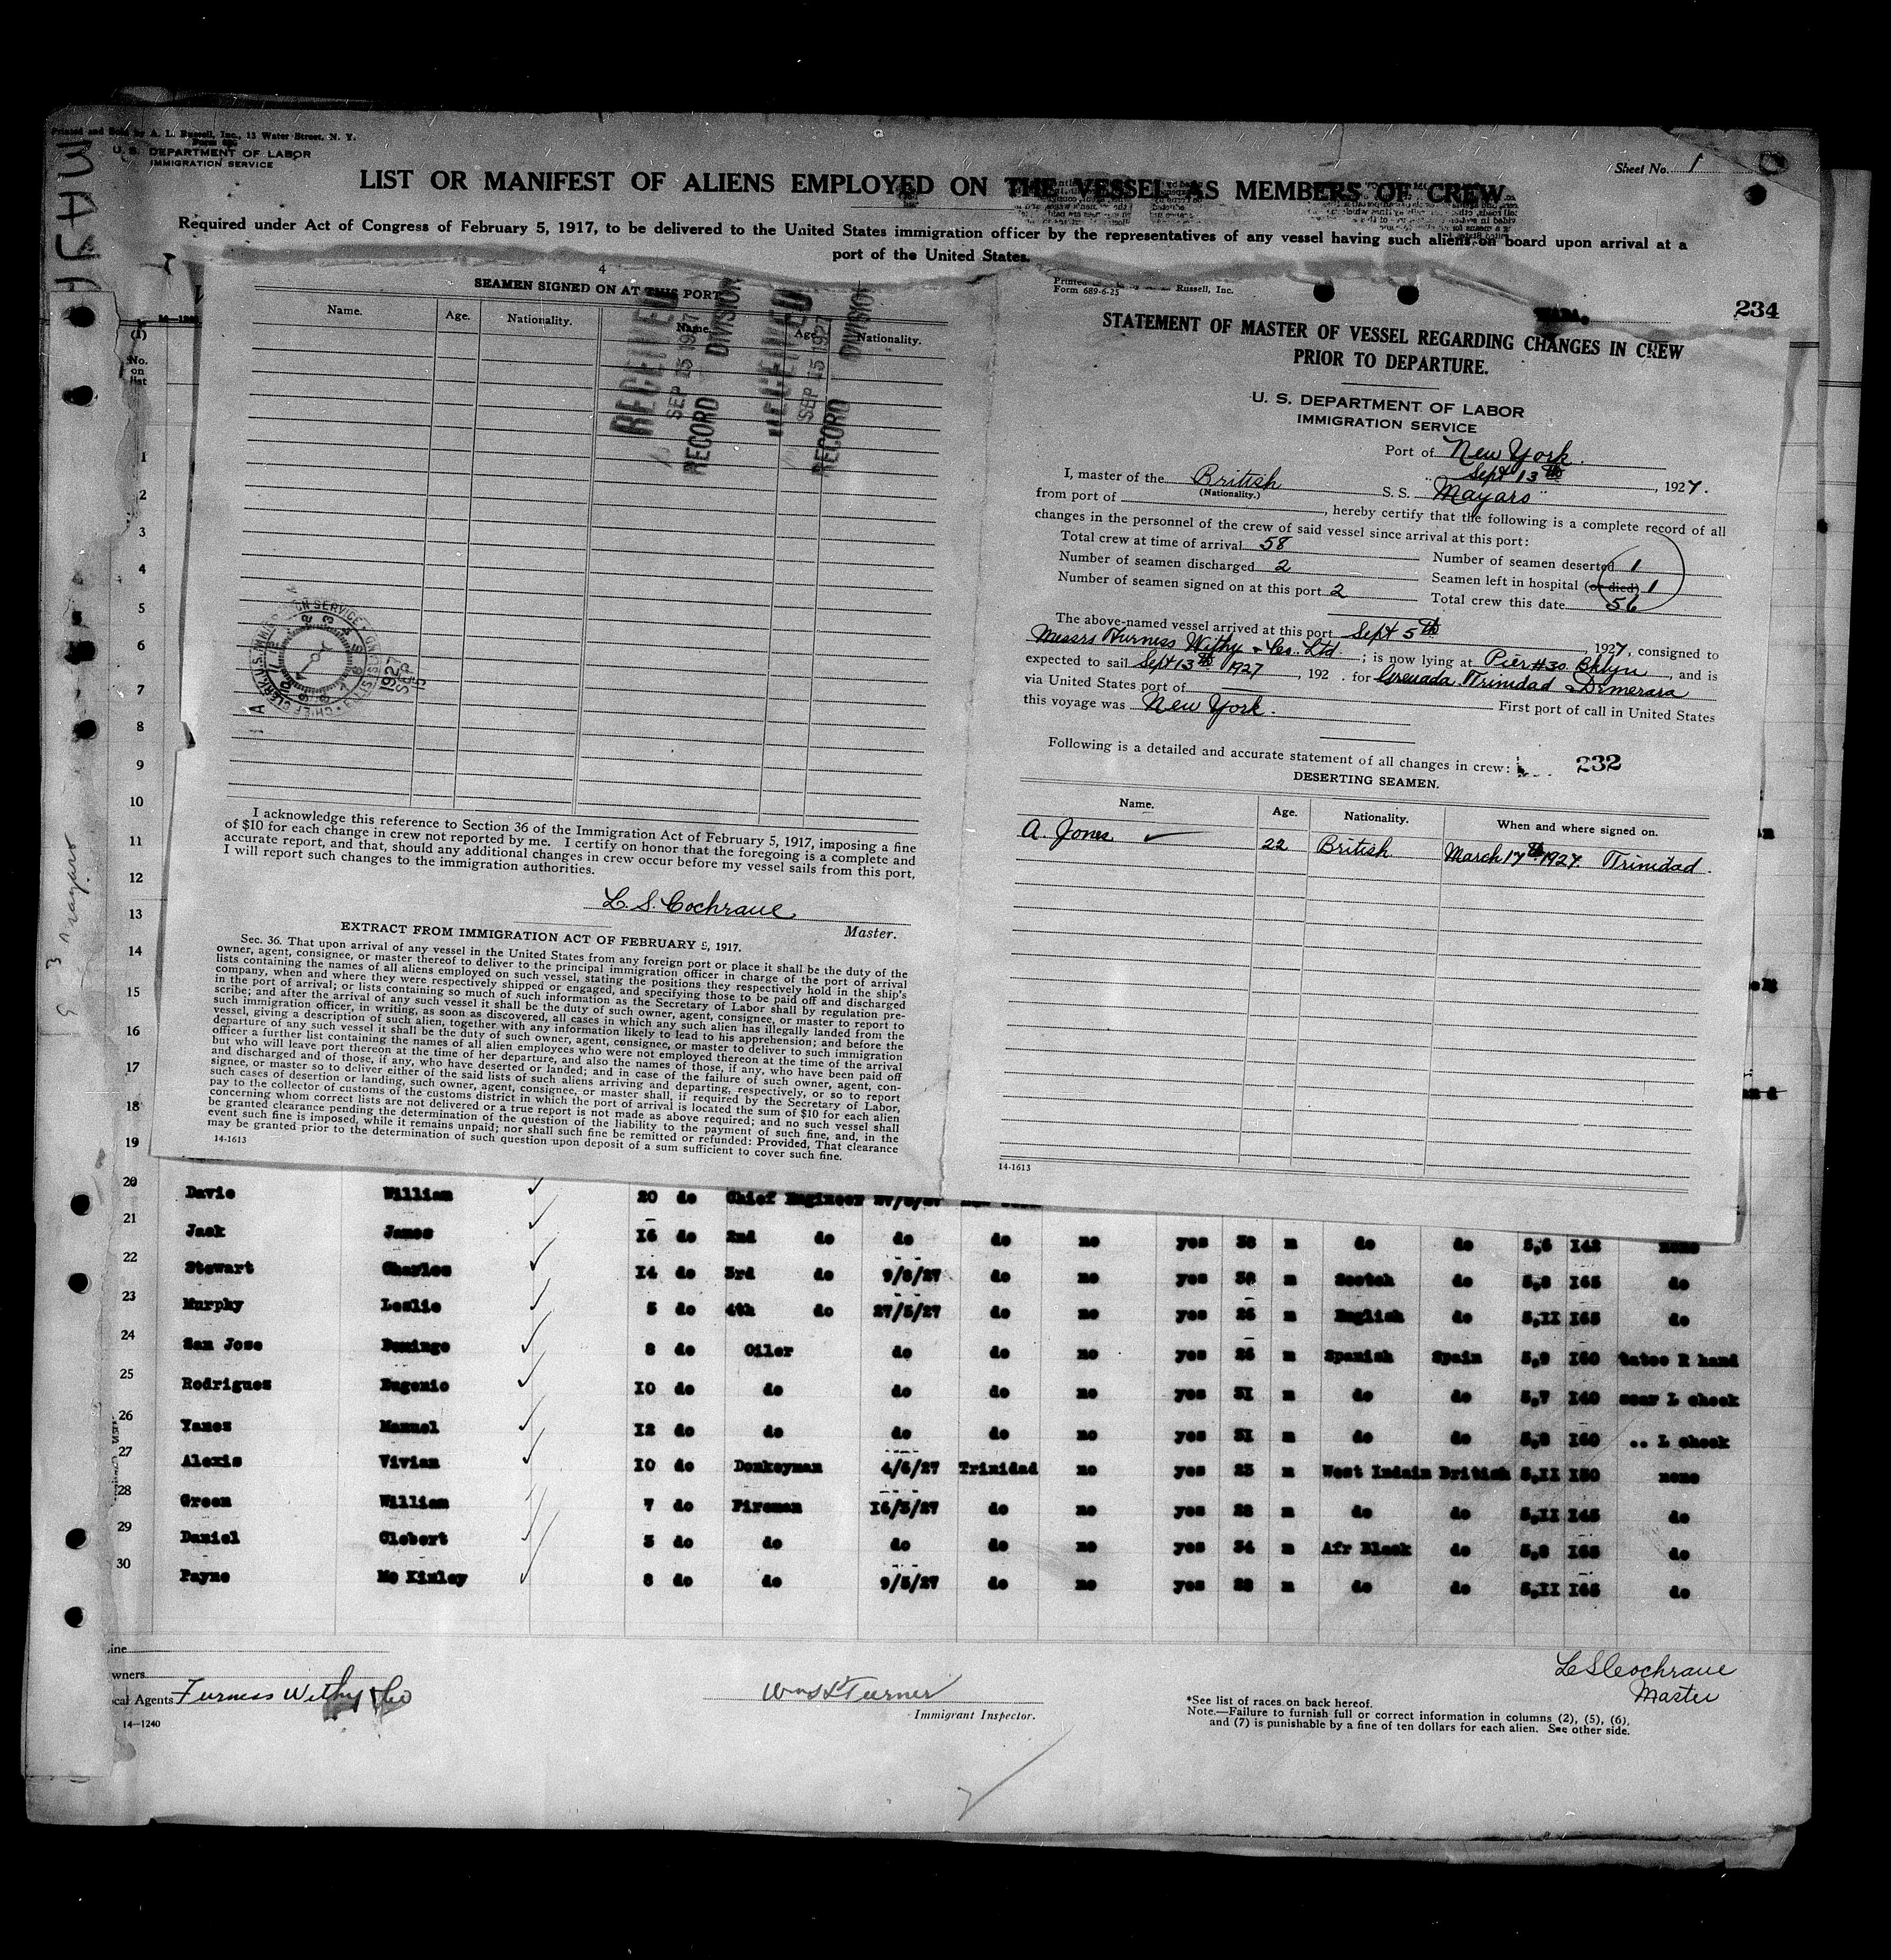 Printed and Sold by A. L. Russell, Inc., 13 Water Street, N. Y.
U. S. DEPARTMENT OF LABOR
IMMIGRATION SERVICE
Sheet No. 1
LIST OR MANIFEST OF ALIENS EMPLOYED ON THE VESSEL AS MEMBERS OF CREW
Required under Act of Congress of February 5, 1917, to be delivered to the United States immigration officer by the representatives of any vessel having such aliens on board upon arrival at a
port of the United States.
4
SEAMEN SIGNED ON AT THIS PORT
Name. Age. Nationality. Name. Age. Nationality.
RECEIVED
SEP 15 1927
RECORD DIVISION
RECEIVED
SEP 15 1927
RECORD DIVISION
I acknowledge this reference to Section 36 of the Immigration Act of February 5, 1917, imposing a fine
of $10 for each change in crew not reported by me. I certify on honor that the foregoing is a complete and
accurate report, and that, should any additional changes in crew occur before my vessel sails from this port,
I will report such changes to the immigration authorities.
L. S. Cochrane
Master.
EXTRACT FROM IMMIGRATION ACT OF FEBRUARY 5, 1917.
Sec. 36. That upon arrival of any vessel in the United States from any foreign port or place it shall be the duty of the
owner, agent, consignee, or master thereof to deliver to the principal immigration officer in charge of the port of arrival
lists containing the names of all aliens employed on such vessel, stating the positions they respectively hold in the ship's
company, when and where they were respectively shipped or engaged, and specifying those to be paid off and discharged
in the port of arrival; or lists containing so much of such information as the Secretary of Labor shall by regulation pre-
scribe; and after the arrival of any such vessel it shall be the duty of such owner, agent, consignee, or master to report to
such immigration officer, in writing, as soon as discovered, all cases in which any such alien has illegally landed from the
vessel, giving a description of such alien, together with any information likely to lead to his apprehension; and before the
departure of any such vessel it shall be the duty of such owner, agent, consignee, or master to deliver to such immigration
officer a further list containing the names of all alien employees who were not employed thereon at the time of the arrival
but who will leave port thereon at the time of her departure, and also the names of those, if any, who have been paid off
and discharged and of those, if any, who have deserted or landed; and in case of the failure of such owner, agent, con-
signee, or master so to deliver either of the said lists of such aliens arriving and departing, respectively, or so to report
such cases of desertion or landing, such owner, agent, consignee, or master shall, if required by the Secretary of Labor,
pay to the collector of customs of the customs district in which the port of arrival is located the sum of $10 for each alien
concerning whom correct lists are not delivered or a true report is not made as above required; and no such vessel shall
be granted clearance pending the determination of the question of the liability to the payment of such fine, and, in the
event such fine is imposed, while it remains unpaid; nor shall such fine be remitted or refunded: Provided, That clearance
may be granted prior to the determination of such question upon deposit of a sum sufficient to cover such fine.
14-1613
Russell, Inc.
Form 689-6-25
234
STATEMENT OF MASTER OF VESSEL REGARDING CHANGES IN CREW
PRIOR TO DEPARTURE.
U. S. DEPARTMENT OF LABOR
IMMIGRATION SERVICE
Port of New York
Sept 13th, 1927.
I, master of the British S. S. "Mayaro"
(Nationality.)
from port of , hereby certify that the following is a complete record of all
changes in the personnel of the crew of said vessel since arrival at this port:
Total crew at time of arrival 58
Number of seamen deserted 1
Number of seamen discharged 2
Seamen left in hospital (or died) 1
Number of seamen signed on at this port 2
Total crew this date 56
The above-named vessel arrived at this port Sept 5th, 1927, consigned to
Messrs Furness Withy & Co. Ltd; is now lying at Pier #30. Bklyn, and is
expected to sail Sept 13th 1927, 192 . for Grenada Trinidad Demerara
via United States port of First port of call in United States
this voyage was New York.
Following is a detailed and accurate statement of all changes in crew:
232
DESERTING SEAMEN.
Name. Age. Nationality. When and where signed on.
A. Jones 22 British March 17th 1927. Trinidad.
14-1613
(1)
No.
on
list
1
2
3
4
5
6
7
8
9
10
11
12
13
14
15
16
17
18
19
20 Davie William 20 do Chief Engineer
21 Jack James 16 do 2nd do do do no yes 38 m do do 5,6 142 none
22 Stewart Charles 14 do 3rd do 9/8/27 do no yes 38 m Scotch do 5,8 165 do
23 Murphy Leslie 5 do 4th do 27/5/27 do no yes 26 m English do 5,11 165 do
24 San Jose Domingo 8 do Oiler do do no yes 26 m Spanish Spain 5,9 160 tatoo R hand
25 Rodriguez Eugenio 10 do do do do no yes 31 m do do 5,7 140 scar L cheek
26 Yanez Manuel 12 do do do do no yes 31 m do do 5,8 160 .. L cheek
27 Alexis Vivian 10 do Donkeyman 4/6/27 Trinidad no yes 23 m West Indain British 5,11 150 none
28 Green William 7 do Fireman 16/3/27 do no yes 28 m do do 5,11 145 do
29 Daniel Clebert 3 do do do do no yes 34 m Afr Black do 5,8 165 do
30 Payne Mc Kinley 8 do do 9/5/27 do no yes 28 m do do 5,11 165 do
Local Agents Furness Withy & Co
14-1240
Wm S Turner
Immigrant Inspector.
L S Cochrane
Master
*See list of races on back hereof.
Note.—Failure to furnish full or correct information in columns (2), (5), (6),
and (7) is punishable by a fine of ten dollars for each alien. See other side.